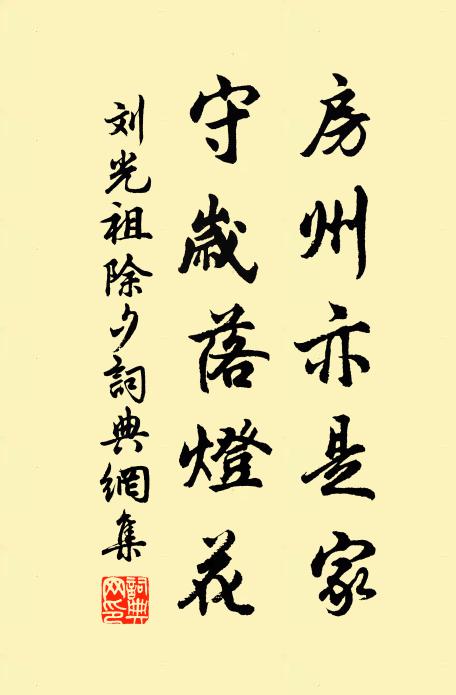 房州亦是家
守歲落燈花
刘光祖除夕詞典網集
詞典网印